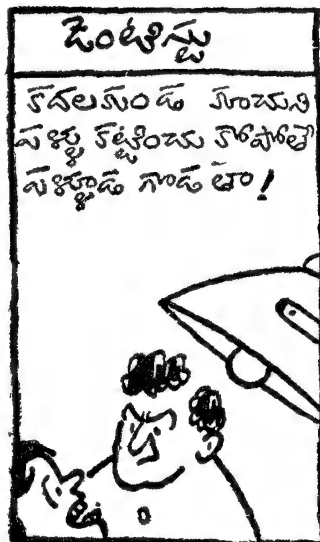 డెంటిస్టు
కదలకుండ కూచుని
పళ్ళు కట్టించు కోపోతే
పళ్ళూడ గొడ తా!